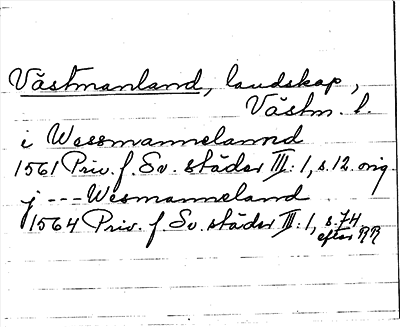 Västmanland, landskap,
Västm. l.
i Wessmannelannd
1561 Priv. f. Sv. städer III: 1, s. 12. orig.
j --- Wesmanneland
1564 Priv. f. Sv. städer III: 1, s. 74.
efter RR